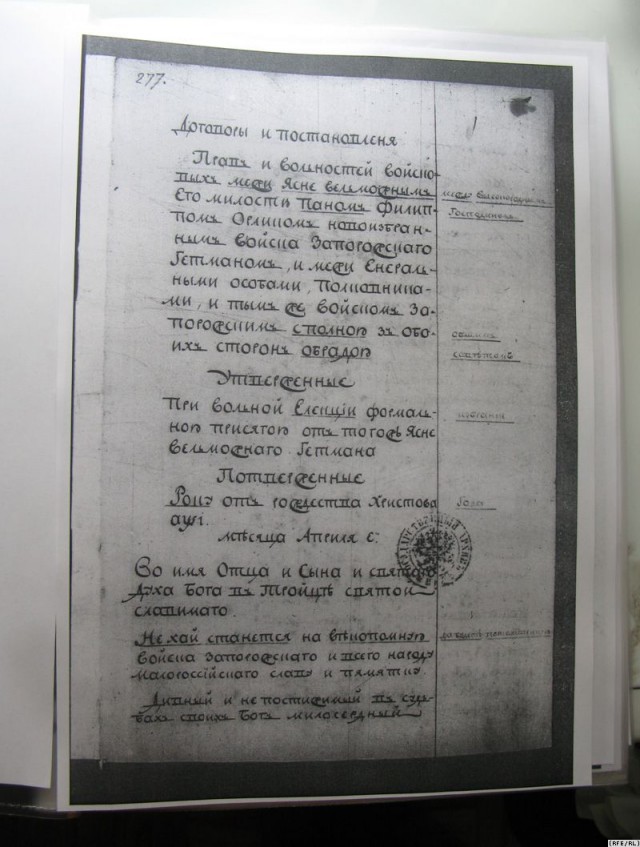 277.
1
Договоры и постановленя
Правъ и вольностей войско-
выхъ межи Ясне вельможнымъ
Его милостю Паномъ Филип-
помъ Орликомъ новоизбран-
нымъ войска Запорожскаго
Гетманомъ, и межи Енераль-
ными особами, Полковника-
ми, и тымъ же войскомъ За-
порожскимъ сполною зъ обо-
ихъ сторонъ обрадою
Утверженные
При вольной Елекціи формаль-
ною присягою отъ того жъ Ясне
вельможнаго Гетмана
Потверженные
Року отъ рождества Христова
аѱі.
мѣсяца Априля е:
Во имя Отца и Сына и святаго
Духа Бога въ Тройцѣ святой
славимаго.
Нехай станется на вѣкопомную
войска Запорожскаго и всего народу
малороссійскаго славу и память
Дивный и непостижимый въ судь-
бахъ своихъ Богъ милосердный
между
общимъ
совѣтомъ
избрании
Года
[RFE/RL]